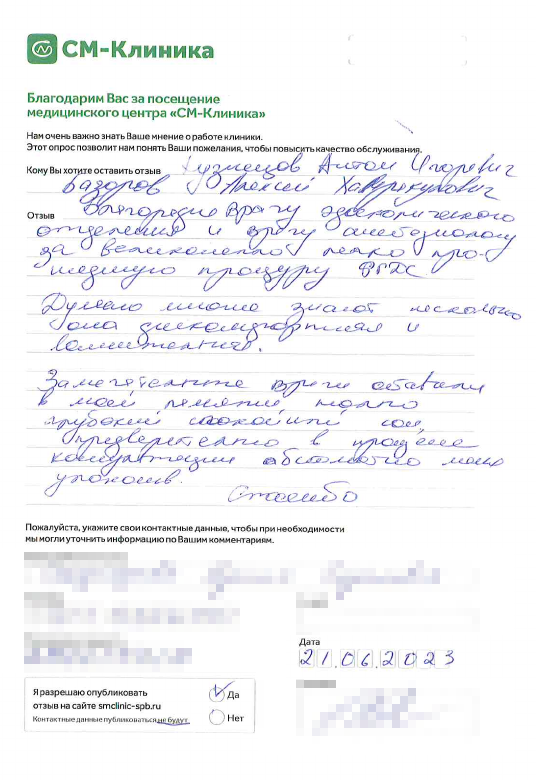 СМ-Клиника
Благодарим Вас за посещение
медицинского центра «СМ-Клиника»
Нам очень важно знать Ваше мнение о работе клиники.
Этот опрос позволит нам понять Ваши пожелания, чтобы повысить качество обслуживания.
Кому Вы хотите оставить отзыв Кузнецов Антон Игоревич
Алексей
Отзыв врачу эндоскопического
отделения и врачу анестезиологу
за великолепно легко про-
шедшую процедуру ФГДС
Думаю многие знают насколько
она дискомфортная и
волнительная.
Замечательные врачи оставили
в моей памяти только
глубокий спокойный сон,
предварительно в процессе
консультации абсолютно меня
успокоив.
Спасибо
Пожалуйста, укажите свои контактные данные, чтобы при необходимости
мы могли уточнить информацию по Вашим комментариям.
Дата
21.06.2023
Я разрешаю опубликовать
отзыв на сайте smclinic-spb.ru
Контактные данные публиковаться не будут.
Да
Нет